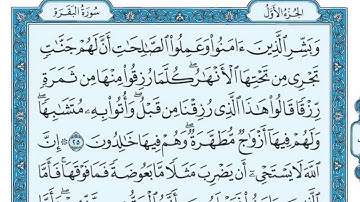 الجزء الأول سورة البقرة
وَبَشِّرِ ٱلَّذِينَ ءَامَنُوا۟ وَعَمِلُوا۟ ٱلصَّـٰلِحَـٰتِ أَنَّ لَهُمْ جَنَّـٰتٍ
تَجْرِى مِن تَحْتِهَا ٱلْأَنْهَـٰرُ ۖ كُلَّمَا رُزِقُوا۟ مِنْهَا مِن ثَمَرَةٍ
رِّزْقًا ۙ قَالُوا۟ هَـٰذَا ٱلَّذِى رُزِقْنَا مِن قَبْلُ ۖ وَأُتُوا۟ بِهِۦ مُتَشَـٰبِهًا ۖ
وَلَهُمْ فِيهَآ أَزْوَٰجٌ مُّطَهَّرَةٌ ۖ وَهُمْ فِيهَا خَـٰلِدُونَ ٢٥ ۞ إِنَّ
ٱللَّهَ لَا يَسْتَحْىِۦٓ أَن يَضْرِبَ مَثَلًا مَّا بَعُوضَةً فَمَا فَوْقَهَا ۚ فَأَمَّا